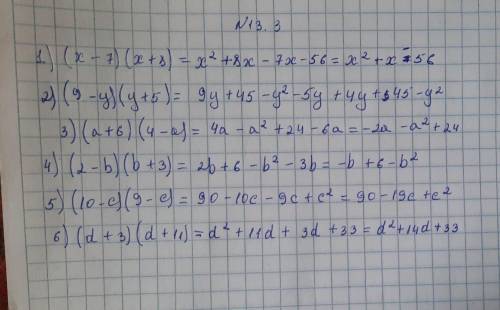 №13. 3
1.) (x - 7)(x + 8) = x² + 8x - 7x - 56 = x² + x - 56
2) (9 - y)(y + 5) = 9y + 45 - y² - 5y + 4y + 45 - y²
3) (a + 6)(4 - a) = 4a - a² + 24 - 6a = -2a - a² + 24
4) (2 - b)(b + 3) = 2b + 6 - b² - 3b = -b + 6 - b²
5) (10 - c)(9 - c) = 90 - 10c - 9c + c² = 90 - 19c + c²
6) (d + 3)(d + 11) = d² + 11d + 3d + 33 = d² + 14d + 33